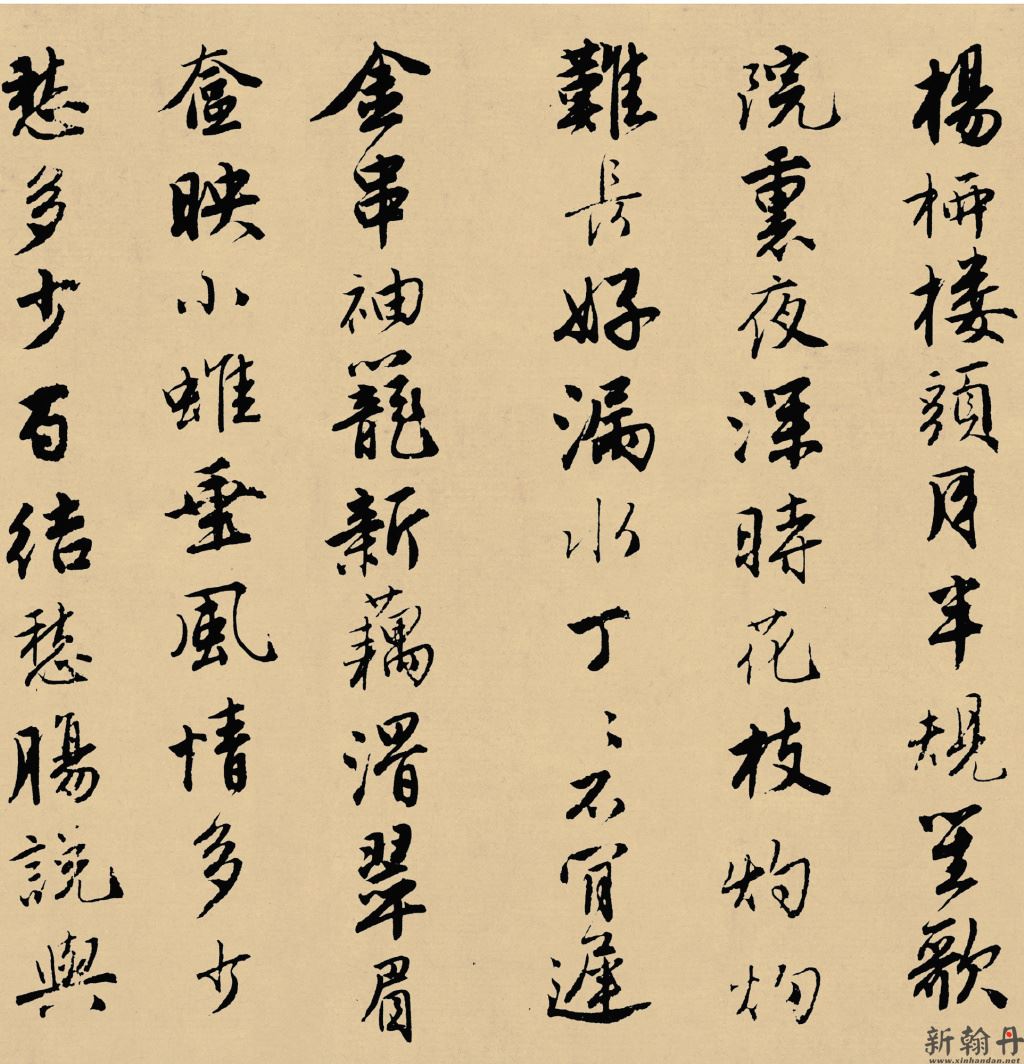 楊柳樓頭月半規笙歌
院裏夜深時花枝灼灼
難長好漏水丁〻不肯遲
金串袖籠新藕滑翠眉
奩映小蜼垂風情多少
愁多少百結愁腸說與
新翰丹
www.xinhandan.net